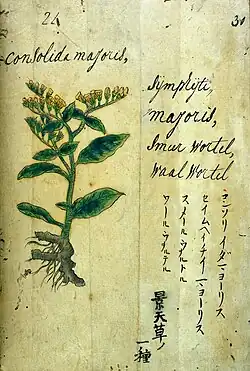 24
31
Consolida majoris,
Symphyti,
majoris,
Smeer wortel,
Waal Wortel
コンソリイダマヨーリス
セイムヘイテイマヨーリス
スメールウヲルトル
ワールウヲルテル
景天草ノ
一種